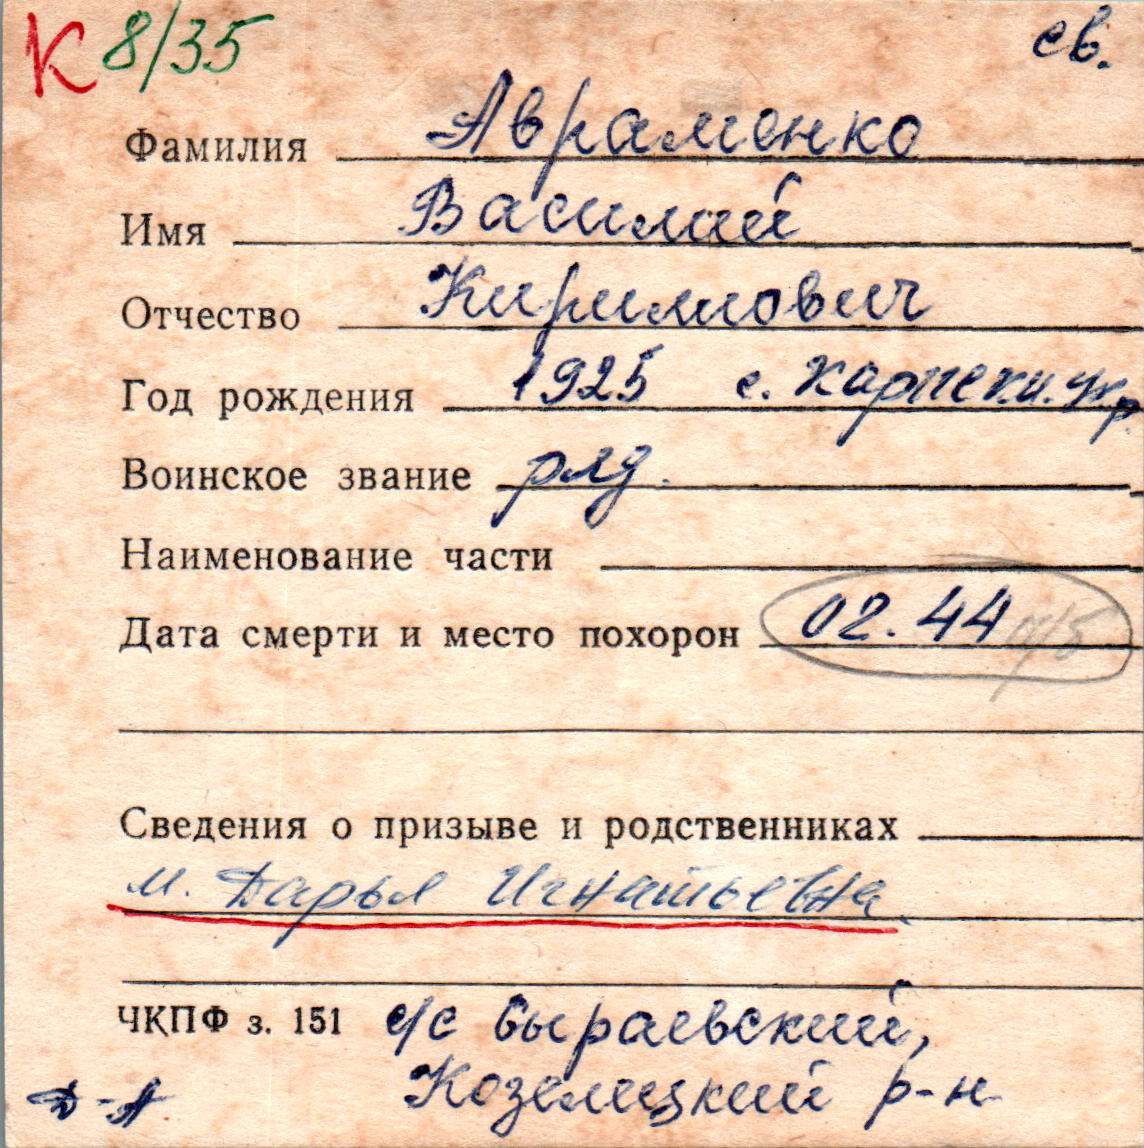 К 8/35 св.
Фамилия Авраменко
Имя Василий
Отчество Кирилович
Год рождения 1925 с. Карпеки. Укр.
Воинское звание ряд.
Наименование части
Дата смерти и место похорон 02.44
Сведения о призыве и родственниках
м. Дарья Игнатьевна
ЧКПФ з. 151 с/с Сыраевский,
Козелецкий р-н
Д-А